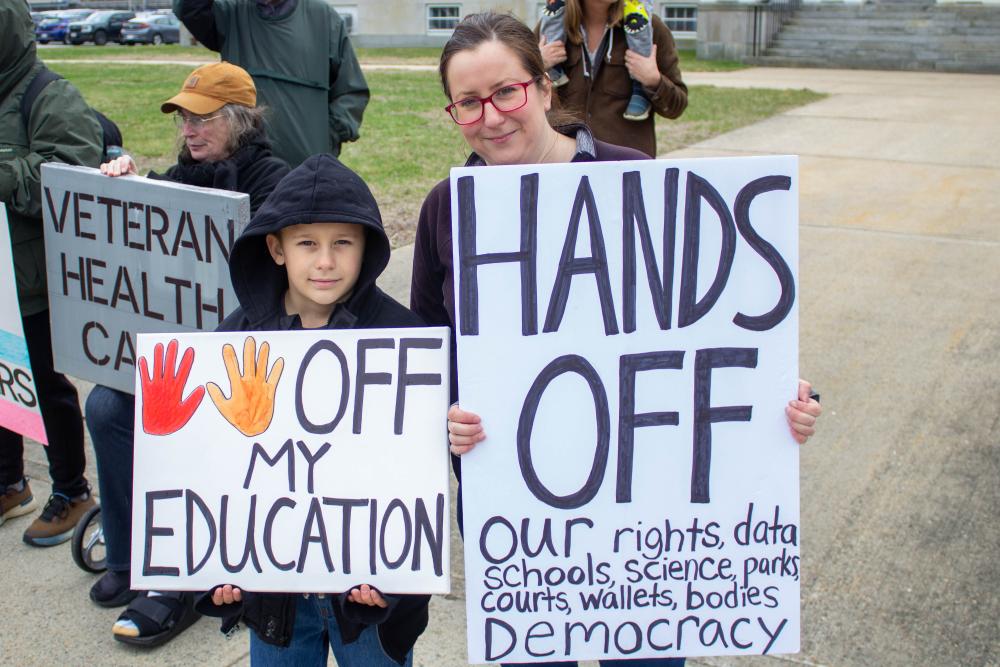 VETERAN
HEALTH
OFF
MY
EDUCATION
HANDS
OFF
our rights, data
schools, science, parks,
courts, wallets, bodies
Democracy